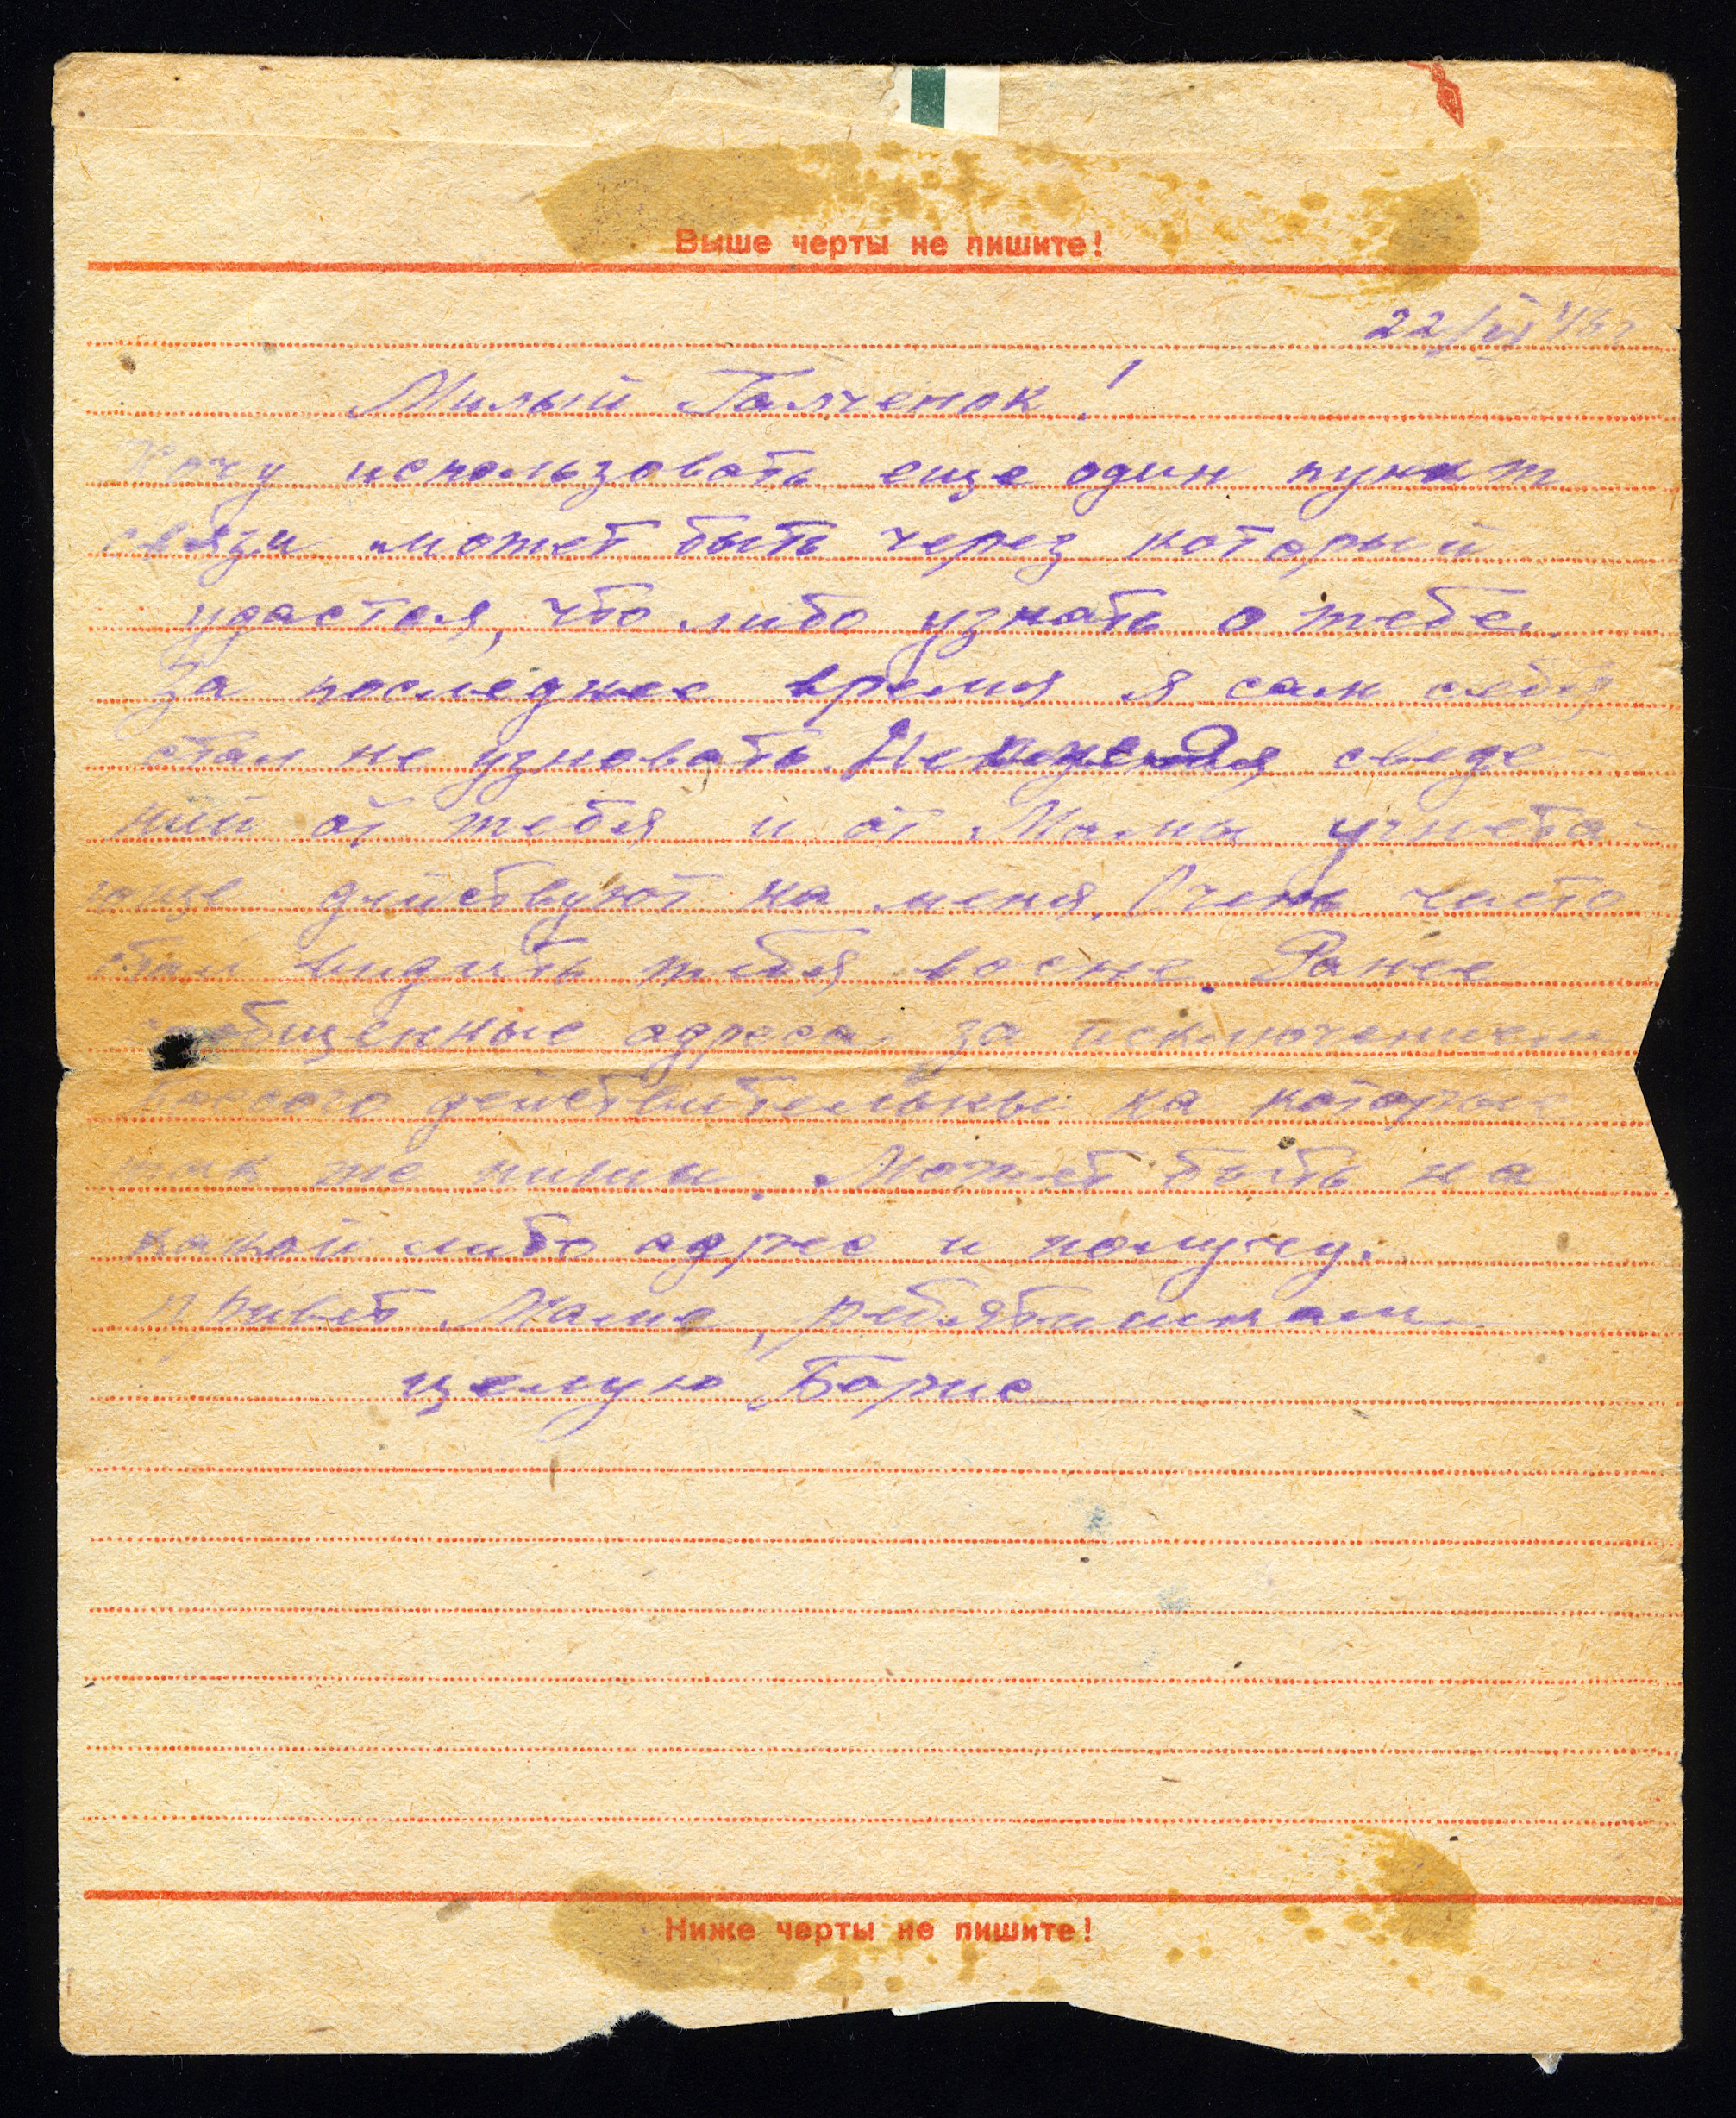 Выше черты не пишите!
22/VI
Милый Галченок!
Хочу использовать еще один пункт
связи может быть через который
удастся, что либо узнать о тебе.
За последнее время я сам себя
стал не узновать. сведе-
ний от тебя и от Мамы угнета-
юще действуют на меня. Очень часто
стал видить тебя восне. Ранее
сообщенные адреса за исключением
действительны на которые
так же пиши. Может быть на
какой либо адрес и получу.
Привет Маме, ребятишкам
целую Борис
Ниже черты не пишите!